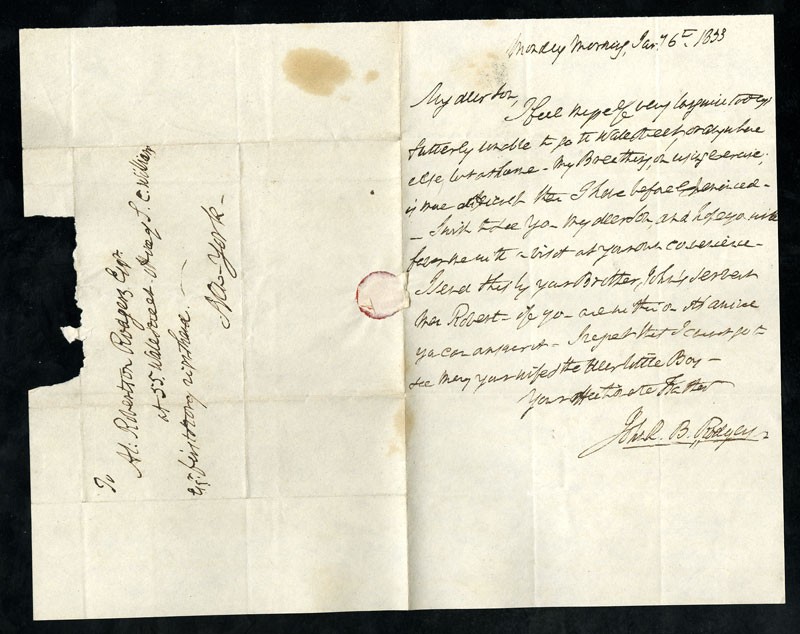 Monday Morning, Jany 6th. 1833
My dear Son,
I feel myself very
utterly unable to go to Wall street or anywhere
else but at home - My Breathing, on using exercise,
is more difficult than I have before Experienced -
- I wish to see You - my dear Son, and hope you will
favor me with a visit at your own convenience -
I send this by your Brother, John's servant
Robert - if you are within
you can answer it - I regret that I cannot go to
see Mary your wife & the dear little Boy -
Your affectionate Father
John R. B. Rodgers
To
Al: Robertson Rodgers Esqr.
at 55. Wall street Office of S. C. William
Esqr. first story
New-York -